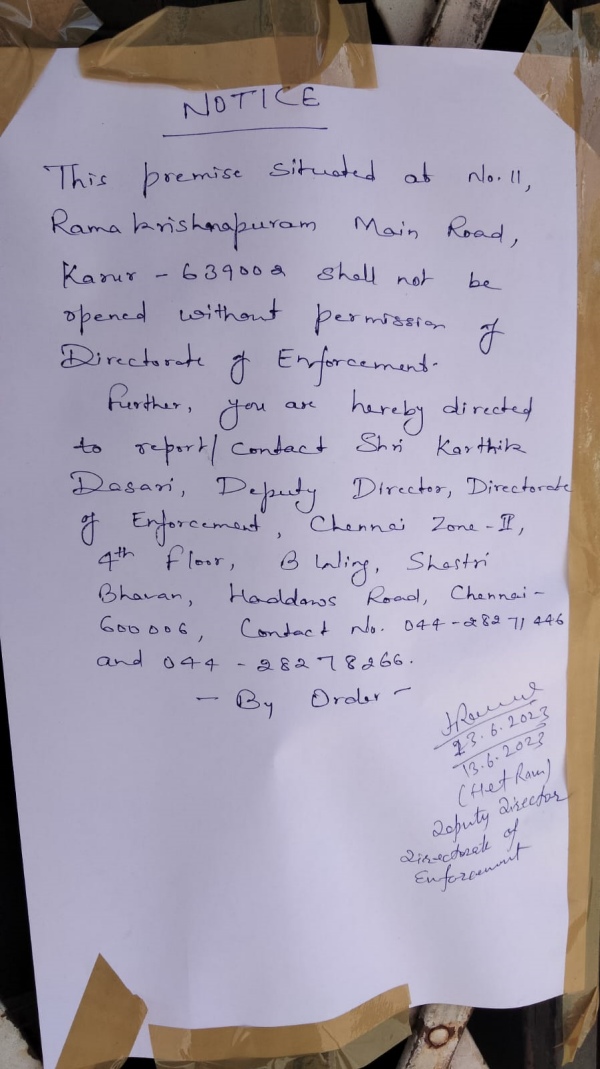 NOTICE
This premise situated at No. 11,
Ramakrishnapuram Main Road,
Karur - 639002 shall not be
opened without permission of
Directorate of Enforcement.
Further, you are hereby directed
to report/contact Shri Karthik
Dasari, Deputy Director, Directorate
of Enforcement, Chennai Zone-II,
4th Floor, B Wing, Shastri
Bhavan, Haddows Road, Chennai-
600006, Contact No. 044-28271446
and 044-28278266.
- By Order -
13.6.2023
13.6.2023
(Het Ram)
Deputy Director
Directorate of
Enforcement